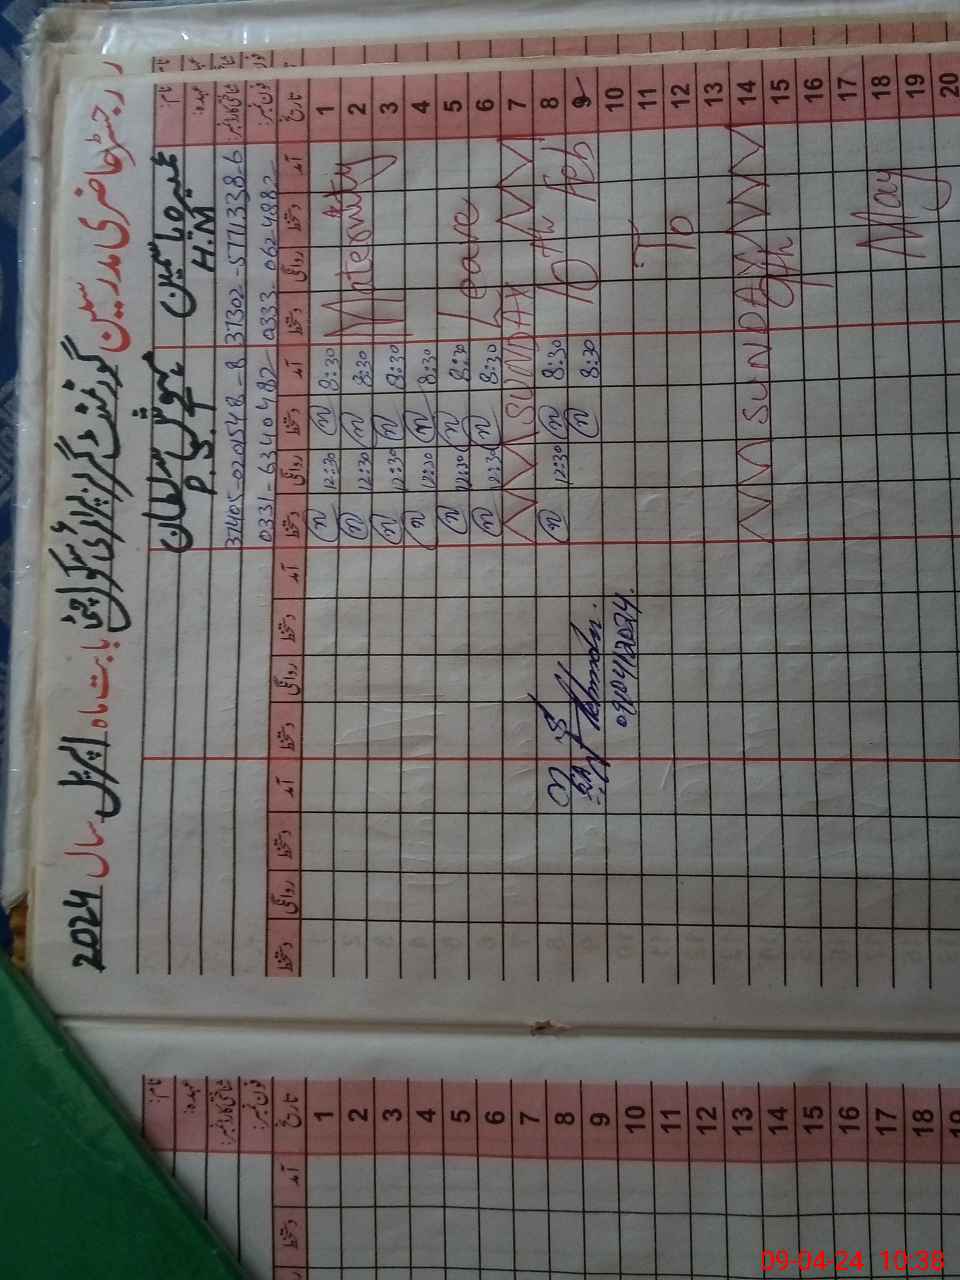 رجسٹر حاضری مدرسین گورنمنٹ گرلز پرائمری سکول بابت ماہ اپریل سال 2024
نام:
عہدہ: H.M P.S.T
شناختی کارڈ نمبر: 37302-5771338-6 37405-0201548-8
فون نمبر: 0333-062-4882 0331-6340482
تاریخ آمد دستخط روانگی دستخط آمد دستخط روانگی دستخط آمد دستخط روانگی دستخط آمد دستخط روانگی دستخط
1 8:30 12:30
2 8:30 12:30
3 8:30 12:30
4 8:30 12:30
5 8:30 12:30
6 8:30 12:30
7 SUNDAY
8 8:30 12:30
9 8:30
10
11
12
13
14 SUNDAY
15
16
17
18
19
20
Maternity
Leave
10th Feb
To
9th
May
09/04/2024.
نام:
عہدہ:
شناختی کارڈ نمبر:
فون نمبر:
تاریخ آمد دستخط
1
2
3
4
5
6
7
8
9
10
11
12
13
14
15
16
17
18
19
09-04-24 10:38